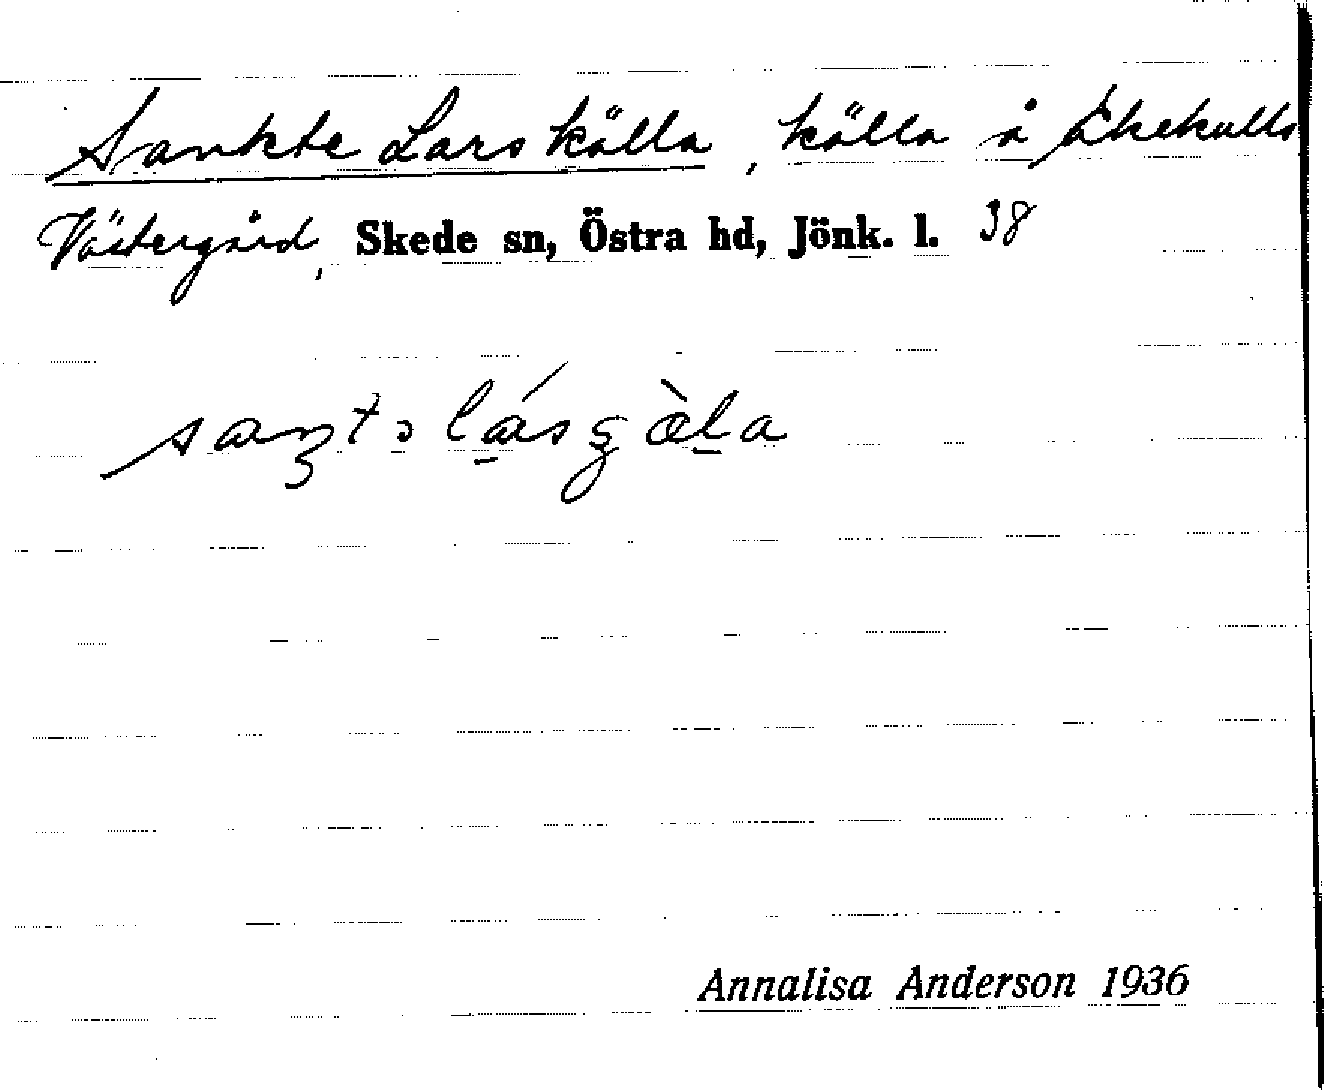 Sankte Lars källa, källa å Åkekulla
Västergård, Skede sn, Östra hd, Jönk. l. 38
Annalisa Anderson 1936